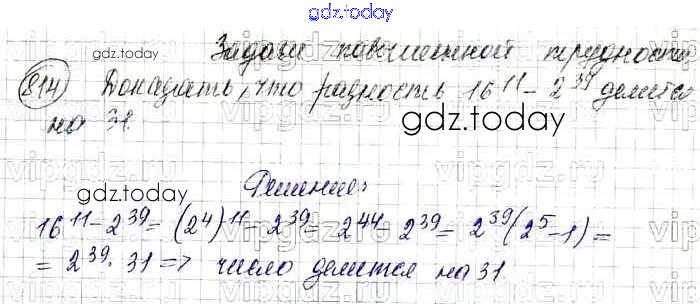 gdz.today
Задачи повышенной трудности
814 Доказать, что разность 16¹¹ - 2³⁹ делится
на 31.
gdz.today
gdz.today
Решение:
16¹¹ - 2³⁹ = (2⁴)¹¹ - 2³⁹ = 2⁴⁴ - 2³⁹ = 2³⁹(2⁵ - 1) =
= 2³⁹ · 31 => число делится на 31.